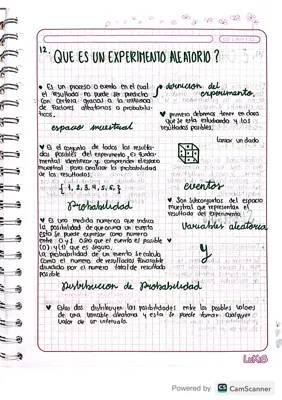 12.
¿QUE ES UN EXPERIMENTO ALEATORIO?
• Es un proceso o evento en el cual
el resultado no puede ser predicho
con certeza debido a la influencia
de factores aleatorios o probabilis-
ticos.
definicion del
experimento.
♥ primero debemos tener en claro
que se esta estudiando y los
resultados posibles.
espacio muestral
lanzar un dado
♥ Es el conjunto de todos los resulta-
dos posibles del experimento, Es funda-
mental identificar y comprender espacio
muestral para analizar la probabilidad
de los resultados.
{ 1, 2, 3, 4, 5, 6, }
eventos
♥ Son subconjuntos del espacio
muestral que representan el
resultado del experimento.
Probabilidad
♥ Es una medida numerica que indica
la posibilidad de que ocurra un evento
esta se puede expresar como numero
entre 0 y 1
(0) y (1) que es seguro,
La probabilidad de un evento se calcula
como el numero de resultados favorable
dividido por el numero total de resultado
posible
Variables aleatoria
y
Distribucion de Probabilidad
♥ Estas dos distribuyen las posibilidades entre los posibles valores
de una variable aleatoria y esta se puede tomar cualquier
valor de un intervalo.
Powered by CS CamScanner